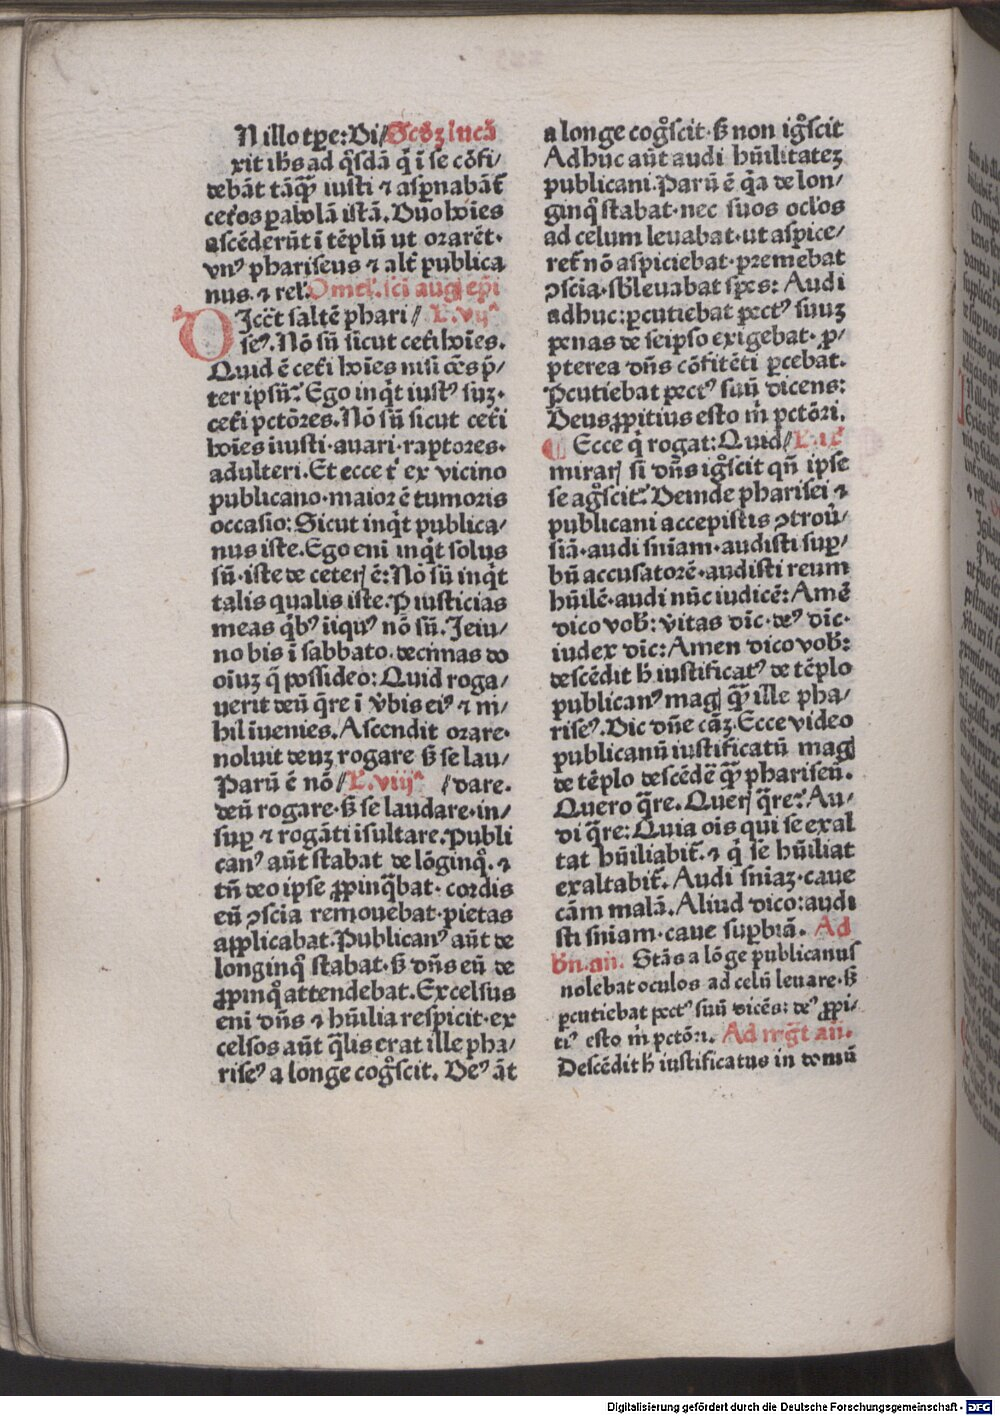 N illo tꝑe: Di/ Scḋꝫ lucā
xit ih̄s ad q̄sdā q̇ ī se cōfi/
debāt tāꝙ̄ iusti ⁊ aspnabāt̄
cet̄os ꝑabolā istā. Duo hōies
ascēderūt ī tēplū ut oꝛarēt·
vnꝰ phariseus ⁊ alt̄ publica
nus. ⁊ rel̄. Omel̄. sci augꝭ epi
Dicc̄t saltē phari/ L̄.vijᵃ
seꝰ. Nō sū sicut cet̄i hōies.
Quid ē cet̄i hōies nisi oēs p̄/
ter ipsū. Ego inq̇t iustꝰ suꝫ·
cet̄i pctōres. Nō sū sicut cet̄i
hōies iiusti·auari·raptores·
adulteri. Et ecce t̄ ex vicino
publicano·maior ē tumoris
occasio: Sicut inq̇t publica/
nus iste. Ego eni inq̇t solus
sū·iste de ceterꝭ ē: Nō sū inq̇t
talis qualis iste. ꝑ iusticias
meas q̇bꝰ iiquꝰ nō sū. Jeiu/
no bis ī sabbato. decimas do
oīuꝫ q̄ possideo: Quid roga/
uerit deū q̄re ī v̄bis eiꝰ ⁊ ni/
hil īuenies. Ascendit orare·
noluit deuꝫ rogare ꝣ se lau/
Parū ē nō // L̄.viijᵃ // dare.
deū rogare·ꝣ se laudare·in/
suꝑ ⁊ rogāti īsultare. Publi
canꝰ aūt stabat de lōginq̊. ⁊
tn̄ deo ipse ꝓpinq̄bat· cordis
eū ꝯscia remouebat·pietas
applicabat. Publicanꝰ aūt de
longinq̊ stabat·ꝣ dn̄s eū de
ꝓpinq̊ attendebat. Excelsus
eni dn̄s ⁊ hūilia respicit·ex
celsos aūt q̄lis erat ille pha/
riseꝰ a longe cog̊scit. Deꝰ āt
a longe cog̊scit·ꝣ non ig̊scit
Adhuc aūt audi hūilitateꝫ
publicani. Parū ē q̇a de lon/
ginq̊ stabat·nec suos ocl̄os
ad celum leuabat·ut aspice/
ret̄ nō aspiciebat·pꝛemebat
ꝯscia·sb̄leuabat spes: Audi
adhuc: ꝑcutiebat pectꝰ suuꝫ
penas de seipso exigebat·ꝓ/
pterea dn̄s cōfitēti ꝑcebat.
Pcutiebat pectꝰ suū dicens:
Deus ꝓpitius esto m̄ pctōri.
Ecce q̇ rogat: Quid/ L̄.ix̄
mirarꝭ si dn̄s ig̊scit qn̄ ipse
se ag̊scit. Deinde pharisei ⁊
publicani accepistis ꝯtrou̇/
siā·audi sniam·audisti suꝑ/
bū accusatorē·audisti reum
hūilē·audi nūc iudicē: Amē
dico vob̄: v̄itas dīc·deꝰ dīc·
iudex dīc: Amen dico vob̄:
descēdit h̄ iustificatꝰ de tēplo
publicanꝰ magꝭ ꝙ̄ ille pha/
riseꝰ. Dic dn̄e cāꝫ. Ecce video
publicanū iustificatū magꝭ
de tēplo descēdē ꝙ̄ phariseū.
Quero q̄re. Querꝭ q̄re. Au/
di q̄re: Quia ois qui se exal
tat hūiliabit̄. ⁊ q̇ se hūiliat
exaltabit̄. Audi sniaꝫ·caue
cām malā. Aliud dico: audi
sti sniam·caue suꝑbiā. Ad
bn̄. an̄. Stās a lōge publicanus
nolebat oculos ad celū leuare·ꝣ
ꝑcutiebat pectꝰ suū dicēs: deꝰ ꝓpi/
tiꝰ esto m̄ pctōri. Ad mḡt an̄.
Descēdit h̄ iustificatus in domū
Digitalisierung gefördert durch die Deutsche Forschungsgemeinschaft - DFG